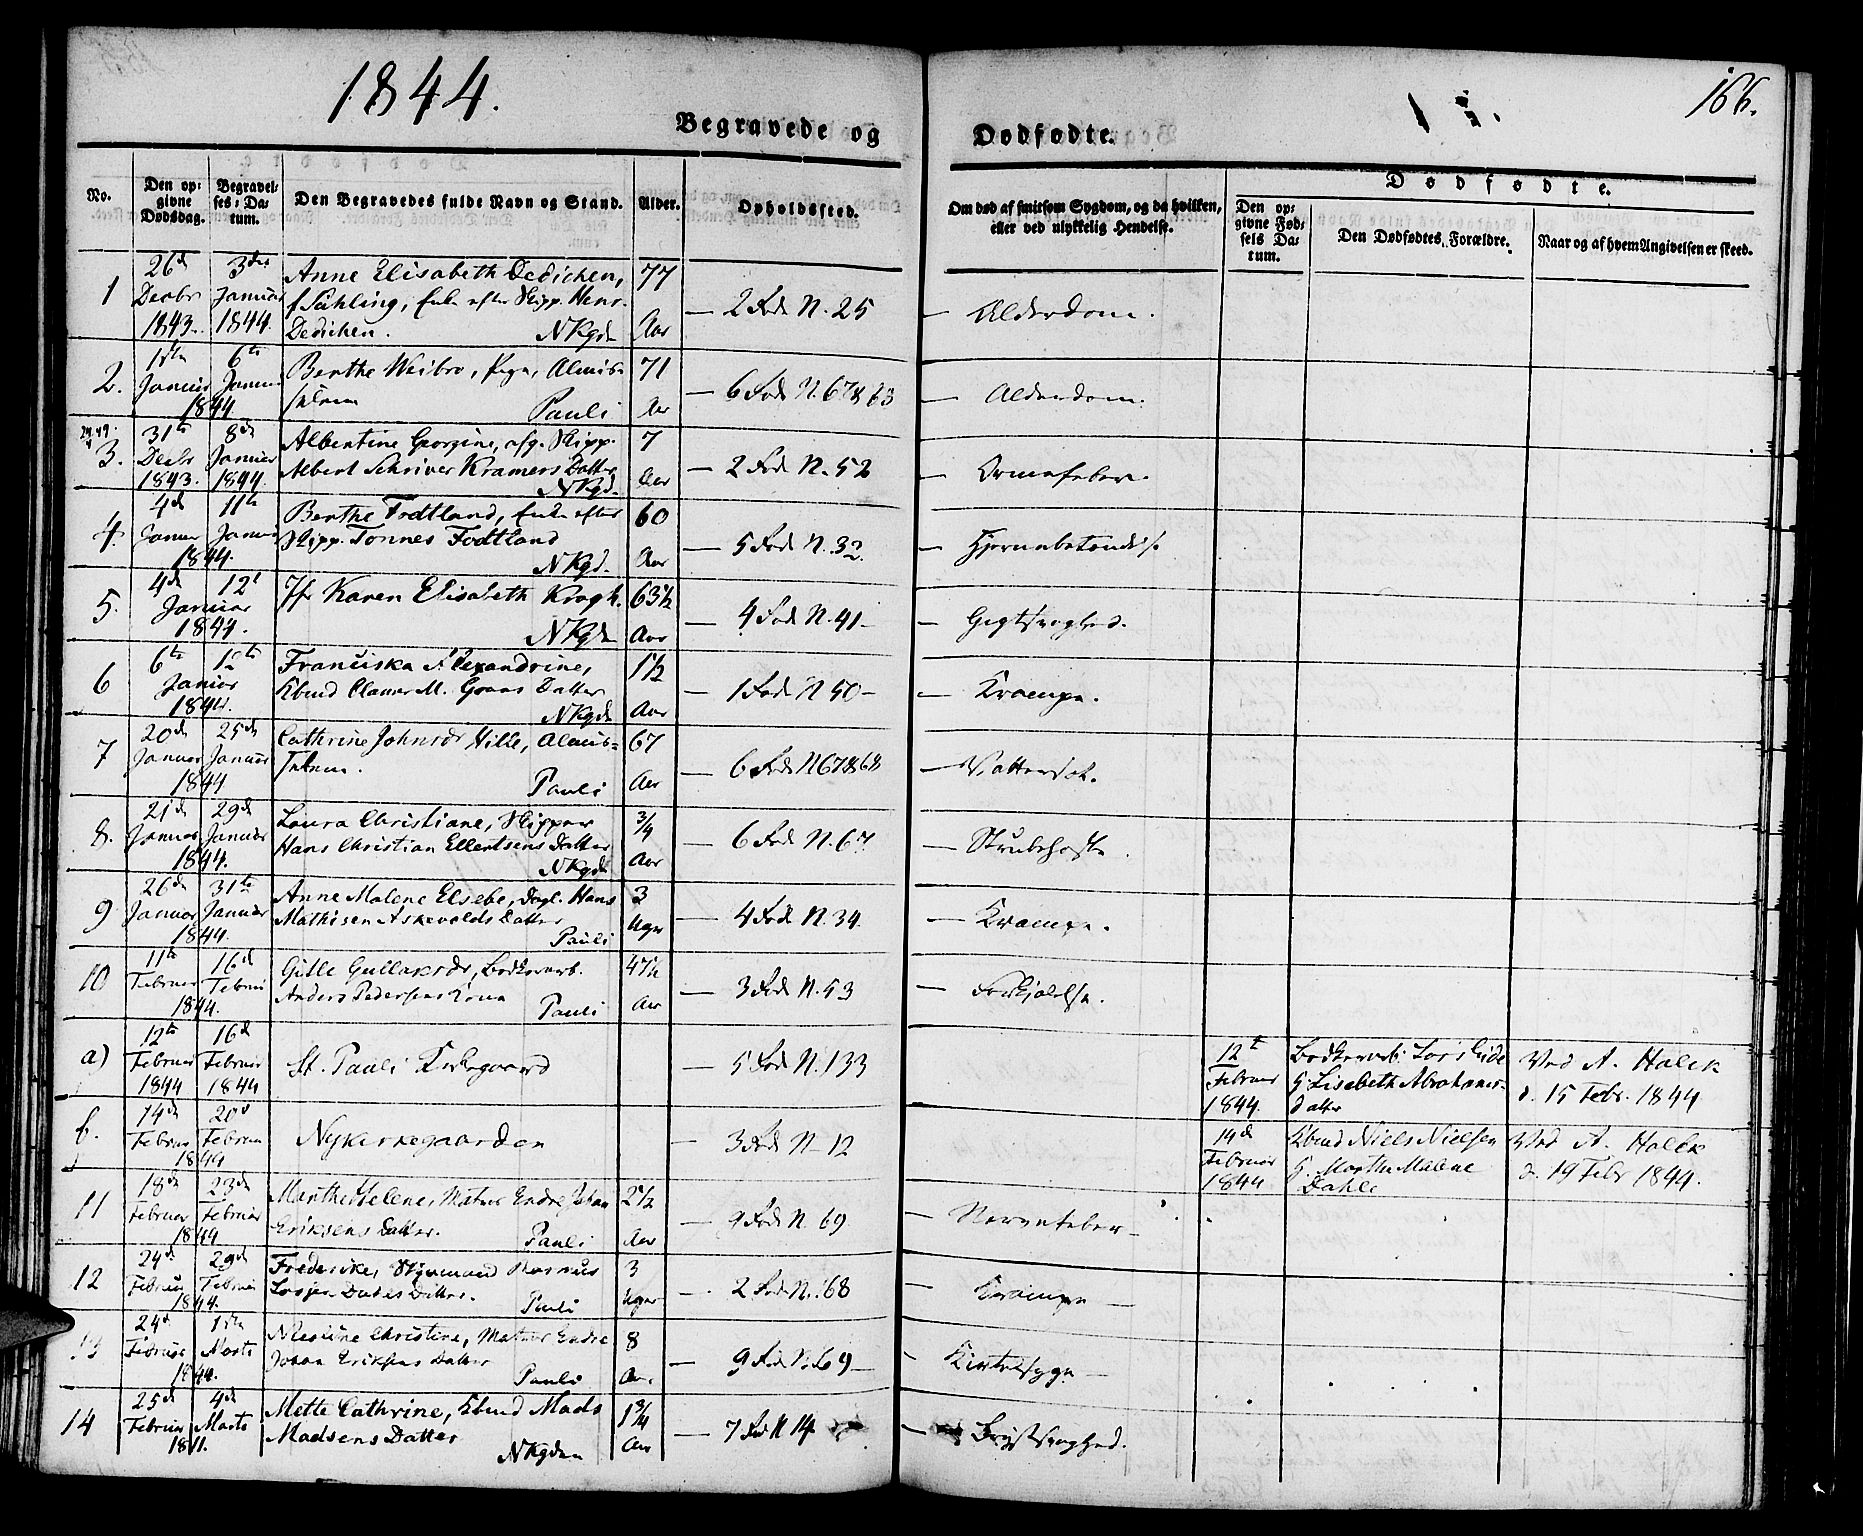 1844.
166.
Begravede og
Dødfødte.
No.
Den op=
givne
Dødsdag.
Begravel=
ses=Da=
tum.
Den Begravedes fulde Navn og Stand.
Alder.
Opholdssted.
Om død af smitsom Sygdom, og da hvilken,
eller ved ulykkelig Hendelse.
Dødfødte.
Den op=
givne Fød=
sels Da=
tum.
Den Dødfødtes Forældre.
Naar og af hvem Angivelsen er skeed.
1 26d 3die Anne Elisabeth Dedichen, 77
Decbr Januar f. Sühling, Enke efter Skipp. Henr. — 2 Rode N. 25 — Alderdom.
1843. 1844. Dedichen. NKgd Aar
2. 1ste 6te Berthe Weibro, Pige, Almis= 71
Januar Januar — 6 Rode N. 67 & 63 — Alderdom.
1844 Pauli Aar
3. 31te 8de Albertine Georgine, afg. Skipp. 7
Decbr Januar Albert Schriver Kramers Datter — 2 Rode N. 52 — Ormefeber.
1843. 1844. NKgd. Aar
4. 4d 11te Berthe Fodtland, Enke efter 60
Januar Januar Skipp. Tonnes Fodtland — 5 Rode N. 32 — Hjernebetændelse
1844. NKgd. Aar
5. 4d 12t Jfr Karen Elisabeth Krogh. 63½
Januar — 4 Rode N. 41 — Gigtsvaghed.
1844. NKgd Aar
6 6te 12te Franciska Alexandrine, 1½
Januar Kbmd Clamer M. Grans Datter — 1 Rode N 50 — Krampe.
1844. NKgd Aar
7 20d 25d Cathrine Johnsdr Hille, Almis= 67
Januar Januar — 6 Rode N 67 & 68 — Vattersot.
1844 Pauli Aar
8. 21d 29d Laura Christiane, Skipper 3/4
Januar Januar Hans Christian Ellertsens Datter — 6 Rode N. 67 — Strubehoste.
1844. NKgd Aar
9 26d 31te Anne Malene Elsebe, Dagl. Hans 3
Januar Januar Mathisen Askevolds Datter — 4 Rode N. 34. — Krampe.
1844. Pauli Uger
10 11te 16d Gitle Gullaksdr, Bødkersv. 47½
Februar Februar Anders Pedersens Kone — 3 Rode N. 53 — Forkjølelse.
1844. Pauli Aar
a) 12te 16d
Februar Februar St. Pauli Kirkegaard — 5 Rode N. 133
1844 1844
12t Bødkersv.
Februar G Lisebeth Abrahams=
1844. datter
Ved A. Halck
d. 15 Febr. 1844
b. 14d 20d
Februar Februar Nykirkegaarden — 3 Rode N - 12
1844
14d Kbmd Niels Nielsen
Februar G. Marthe Malene
1844 Dahle
Ved A. Halck
d. 19 Febr 1844.
11 18d 23d Marthe Helene, Matros Endre Johan 2½
Februar Februar Eriksens Datter. — 9 Rode N. 69 — Nervefeber —
1844 Pauli Aar
12 24d 29d Frederike, Styrmand Rasmus 3
Februar Februar — 2 Rode N. 68 — Krampe —
1844. Pauli Uger
13 24d 1ste Christine, Matros Endre 8
Februar Marts Johan Eriksens Datter — 9 Rode N. 69 — Kirtelsyge —
1844. Pauli Aar.
14 25d 4de Mette Cathrine, Kbmd Mads 1 3/4
Februar Marts Madsens Datter — 7 Rode N 14 — Brystsvaghed.
NKgden Aar